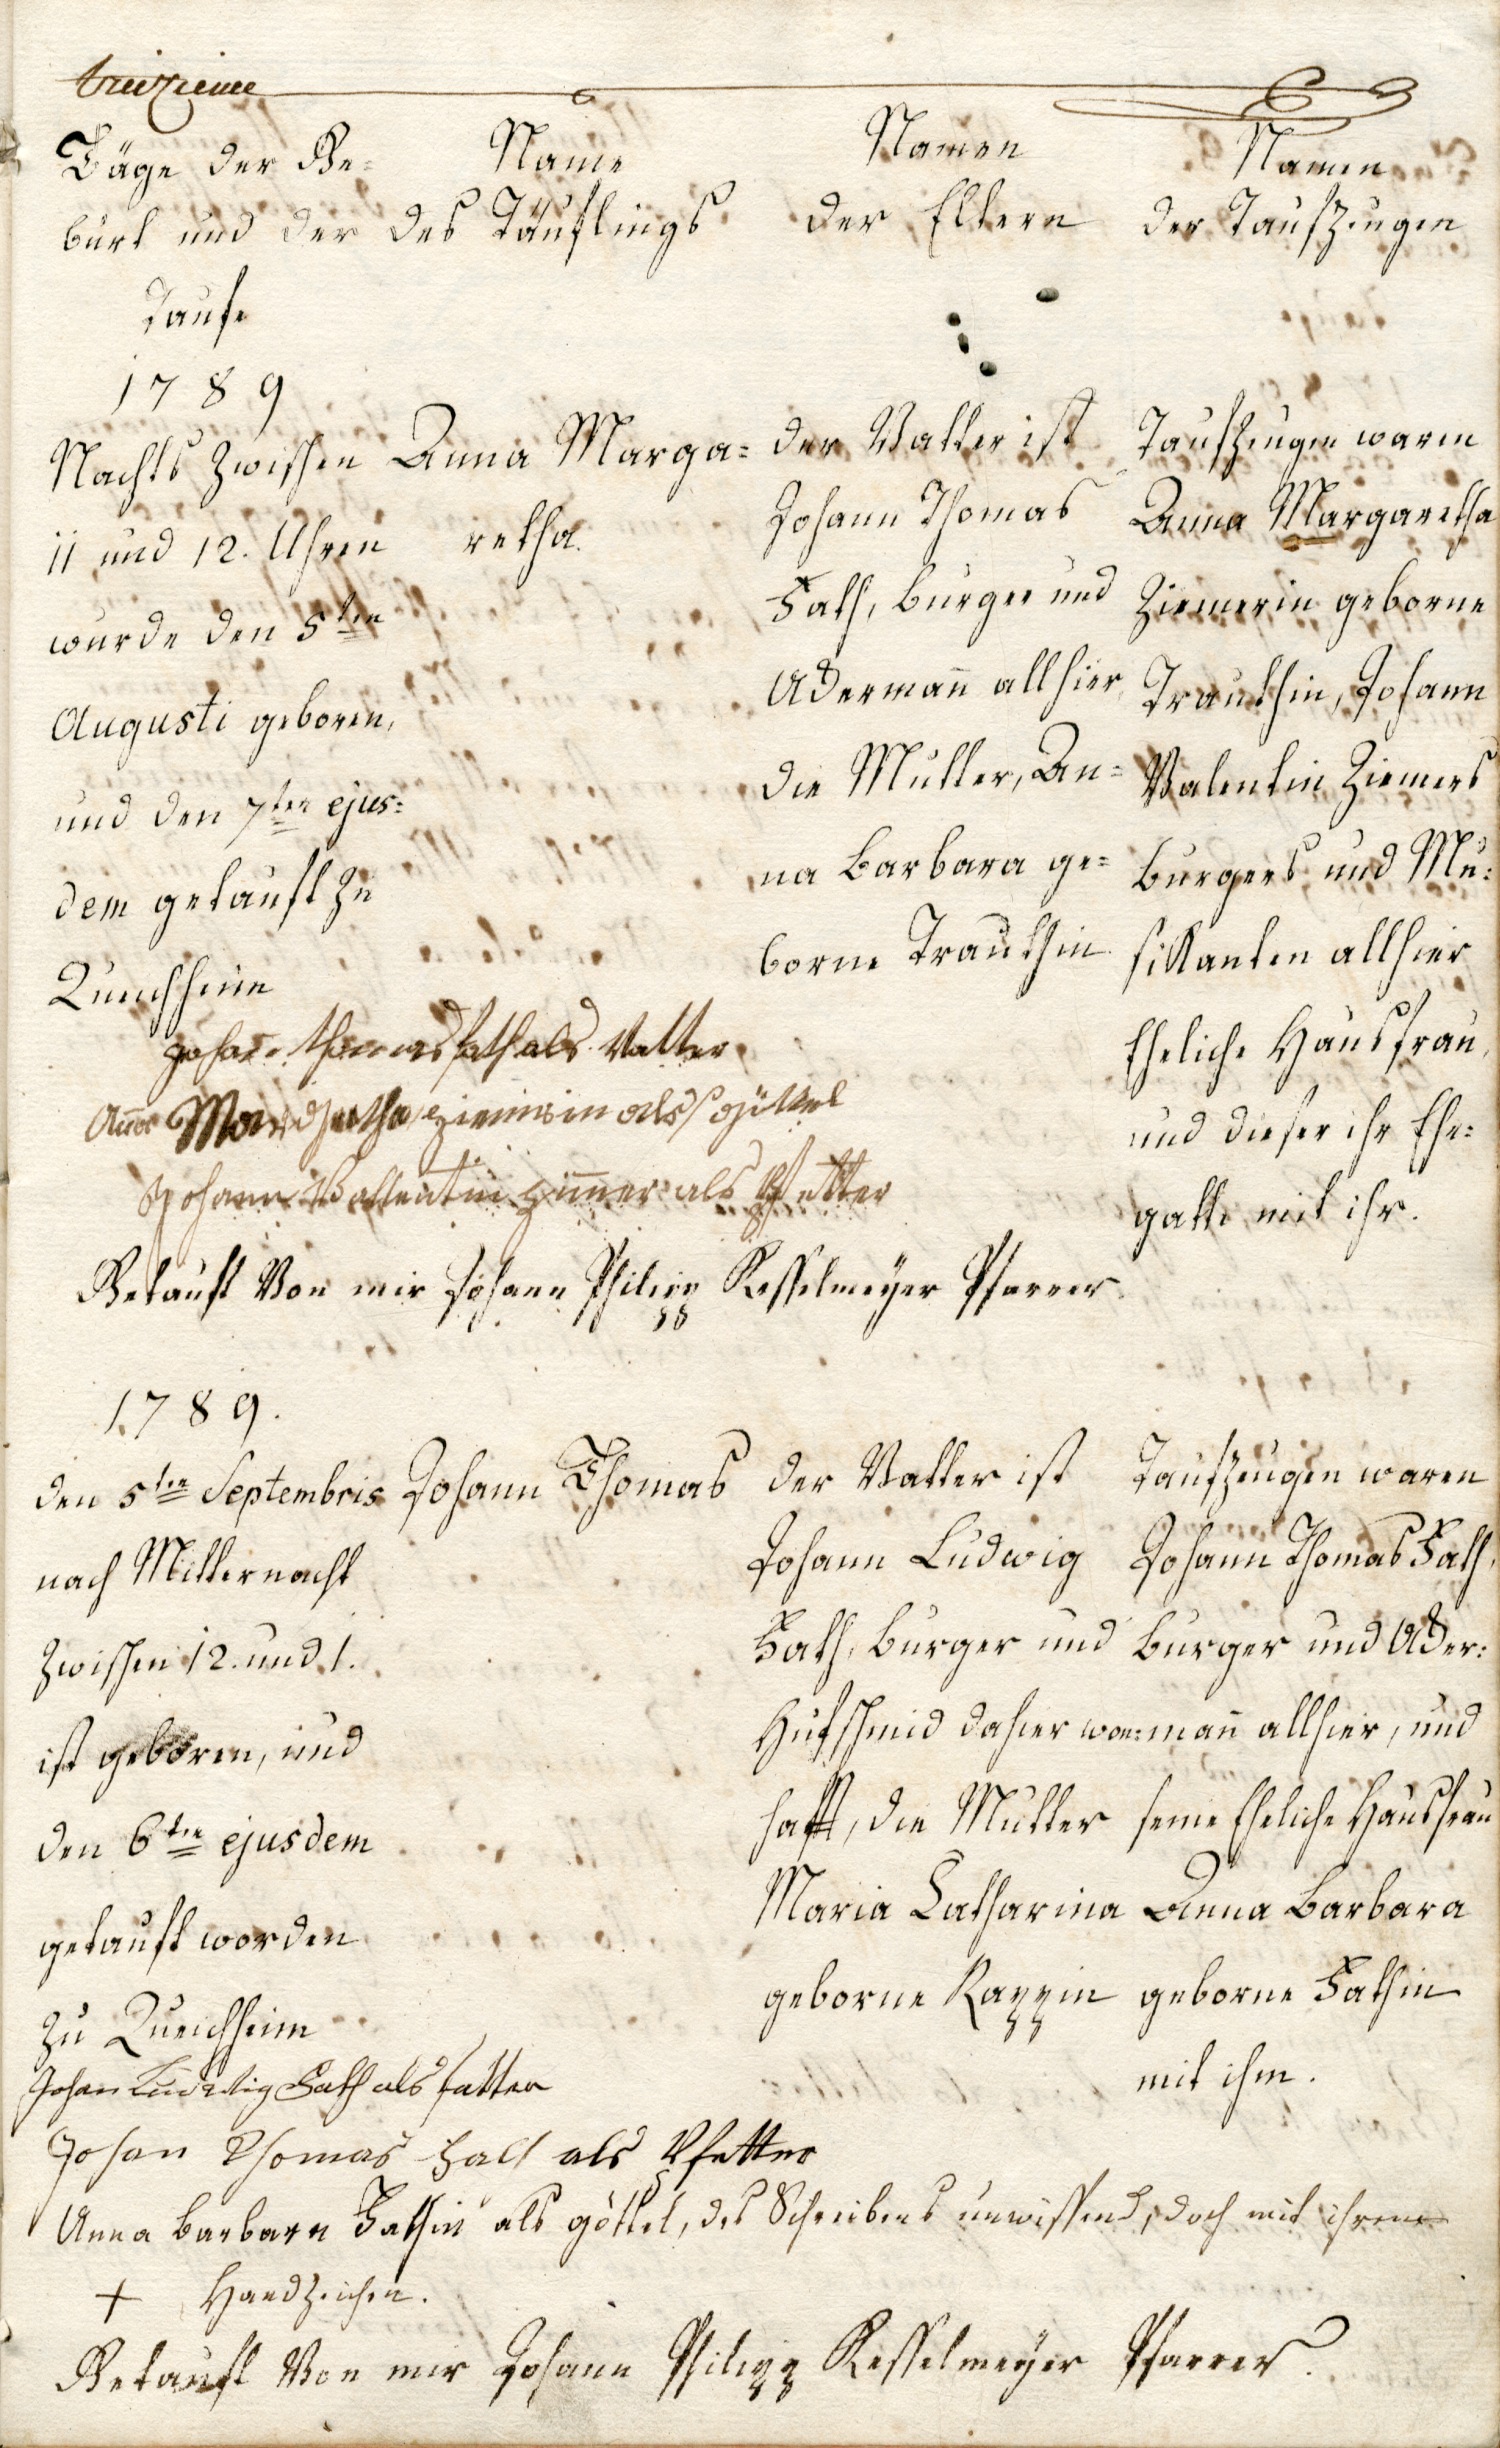 treizieme
Täge der Ge-
burt und der
Taufe
Name
des Täuflings
Namen
der Eltern
Namen
der Taufzeugen
1789
Nachts zwischen
11 und 12. Uhren
wurde den 5ten
Augusti geboren,
und den 7ten ejus=
dem getauft zu
Queichheim
Anna Marga=
retha.
der Vatter ist
Johann Thomas
Fath, burger und
Ackermann allhier,
die Mutter, An=
na Barbara ge=
borne Trauthin
Taufzeugen waren
Anna Margaretha
Ziemerin geborne
Trauthin, Johann
Valentin Ziemers
burgers und Mu=
sikanten allhier
Eheliche Hausfrau,
und dieser ihr Ehe=
gatte mit ihr.
Johann thomas fath als Vatter
Anna Margretha ziemerin als göttel
Johann Vallentin Zimmer als Pfetter
Getauft Von mir Johann Philipp Kesselmeyer Pfarrer.
1789.
den 5ten Septembris
nach Mitternacht
zwischen 12. und 1.
ist geboren, und
den 6ten ejusdem
getauft worden
zu Queichheim
Johann Thomas
der Vatter ist
Johann Ludwig
Fath, burger und
Hufschmid daher won=
hafft, die Mutter
Maria Catharina
geborne Rappin
Taufzeugen waren
Johann Thomas Fath,
burger und Acker=
mann allhier, und
seine Eheliche Hausfrau
Anna Barbara
geborne Fathin
mit ihm.
Johan Ludwig Fath als fatter
Johan Thomas Fath als Pfetter
Anna barbara Fathin als göttel, des Schreibens unwissend, doch mit ihrem
+ Handzeichen.
Getauft Von mir Johann Philipp Kesselmeyer Pfarrer.